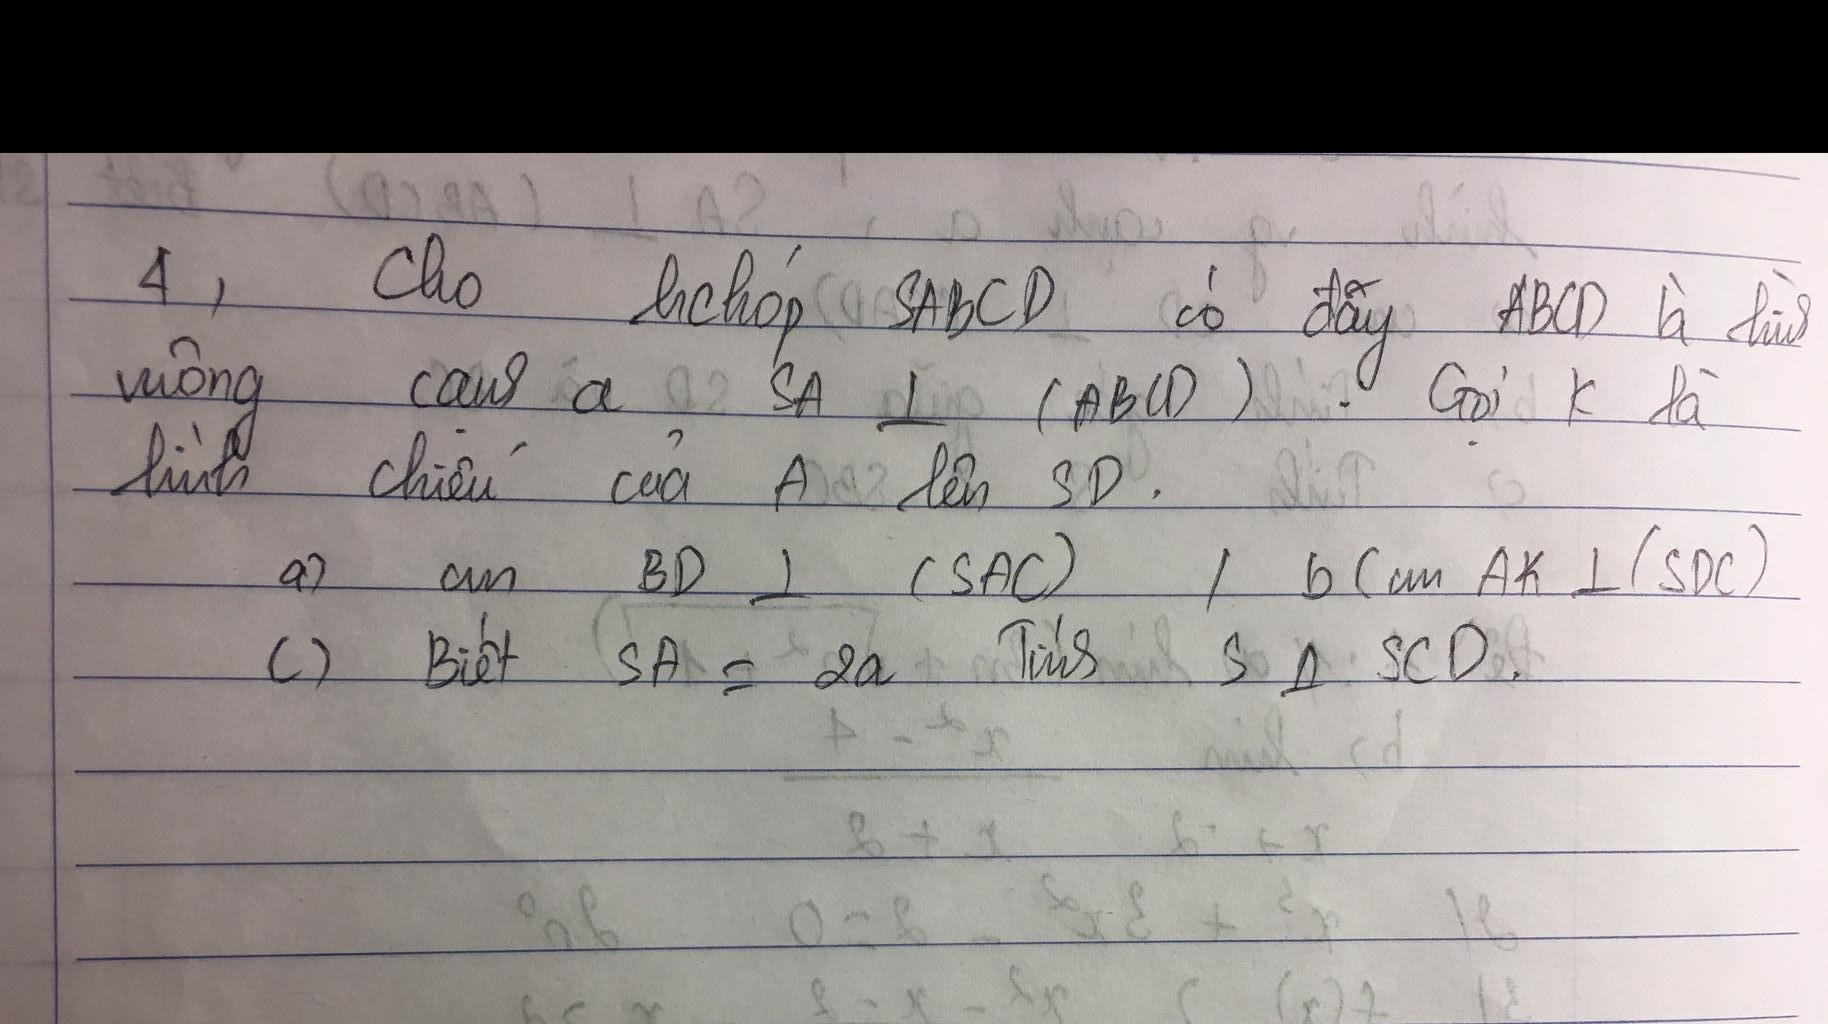 4, Cho hchóp SABCD có đãy ABCD là hình
vuông cạnh a SA ⊥ (ABCD). Gọi K là
hình chiếu của A lên SD.
a) cm BD ⊥ (SAC) / b( cm AK ⊥ (SDC)
c) Biết SA = 2a Tính S Δ SCD.